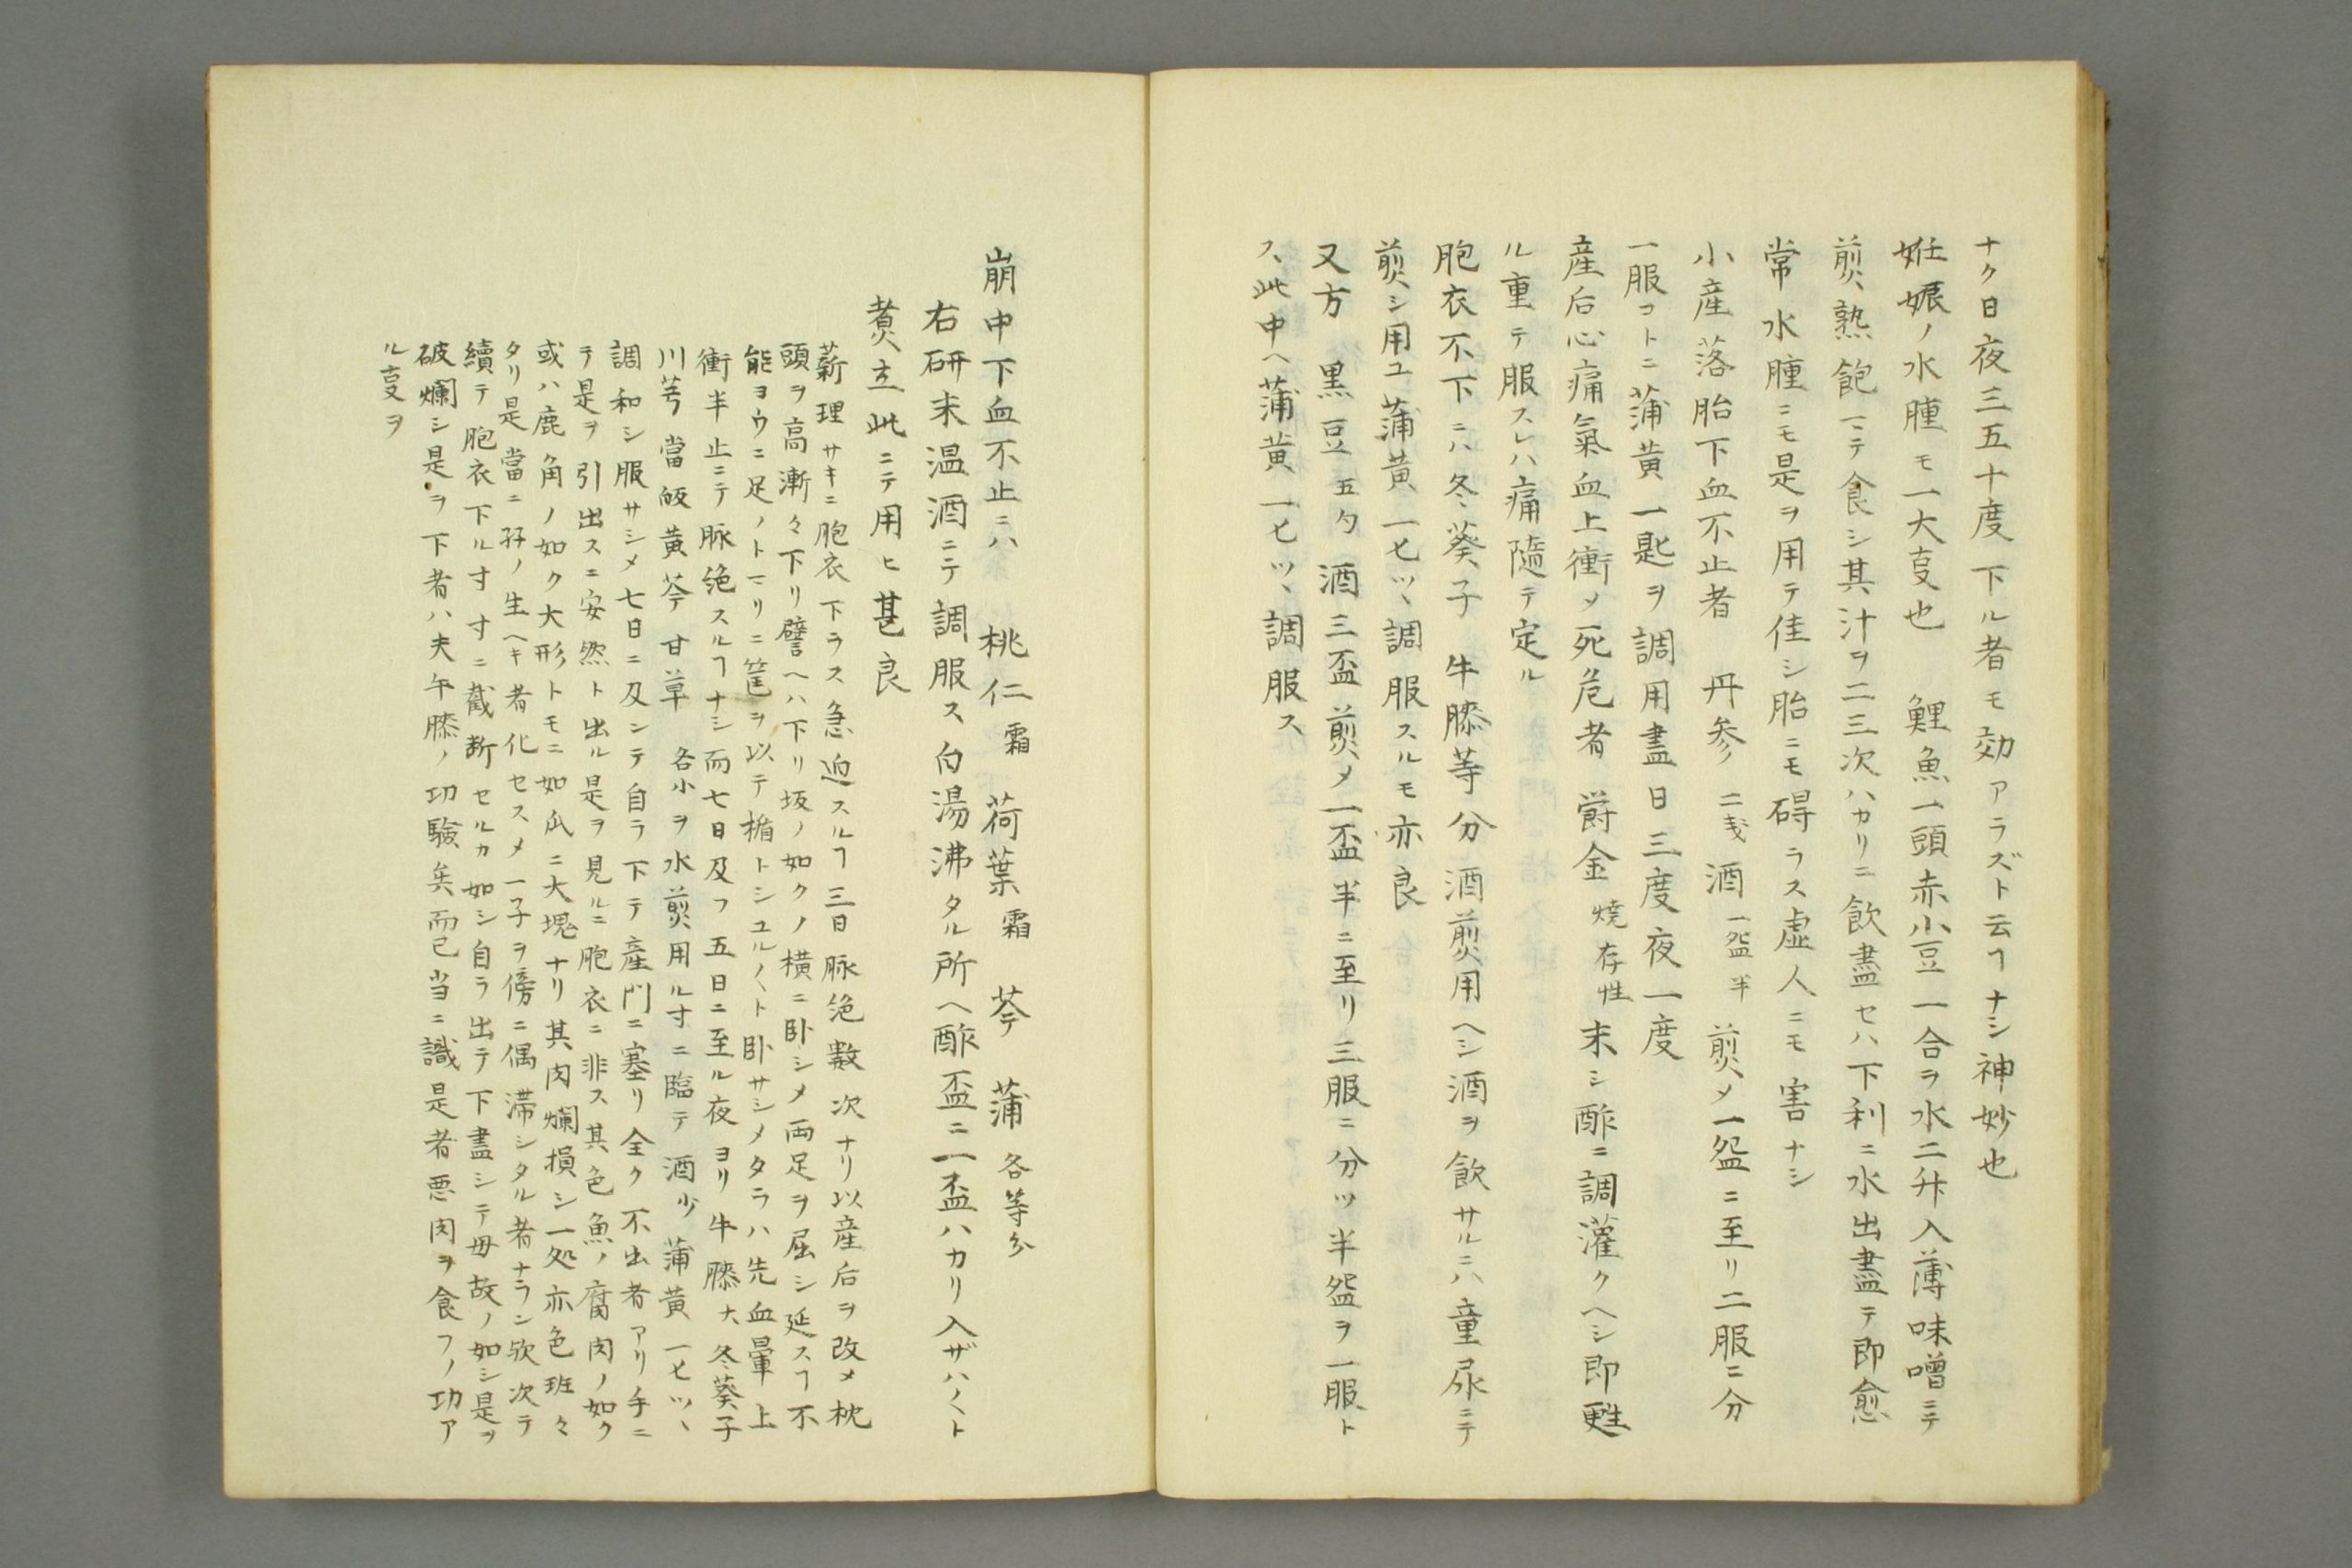 ナク日夜三五十度下ル者モ効アラズト云ヿナシ神妙也
妊娠ノ水腫モ一大叓也　鯉魚一頭赤小豆一合ヲ水二升入薄味噌ニテ
煎熟飽マテ食シ其汁ヲ二三次ハカリニ飲盡セハ下利ニ水出盡テ即愈
常水腫ニモ是ヲ用テ佳シ胎ニモ碍ラス虚人ニモ害ナシ
小産落胎下血不止者　丹参二戔酒一盌半煎メ一盌ニ至リ二服ニ分
一服コトニ蒲黄一匙ヲ調用盡日三度夜一度
産后心痛氣血上衝メ死危者　欝金焼存性末シ酢ニ調灌クヘシ即甦
ル重テ服スレハ痛隨テ定ル
胞衣不下ニハ冬葵子　牛膝等分　酒煎用ヘシ酒ヲ飲サルニハ童尿ニテ
煎シ用ユ蒲黄一匕ツヽ調服スルモ亦良
又方　黒豆五勺　酒三盃煎メ一盃半ニ至リ三服ニ分ツ半盌ヲ一服ト
ス此中ヘ蒲黄一匕ツヽ調服ス
崩中下血不止ニハ　桃仁霜　荷葉霜　芩　蒲各等分
右研末温酒ニテ調服ス白湯沸タル所ヘ酢盃ニ一盃ハカリ入ザハ〱ト
煮立此ニテ用ヒ甚良
薪理サキニ胞衣下ラス急迫スルヿ三日脉絶数次ナリ以産后ヲ改メ枕
頭ヲ高漸々下リ譬ヘハ下リ坂ノ如クノ横ニ卧シメ両足ヲ屈シ延スヿ不
能ヨウニ足ノトマリニ筐ヲ以テ楯トシユル〱ト卧サシメタラハ先血暈上
衝半止ニテ脉絶スルヿナシ而七日及フ五日ニ至ル夜ヨリ牛膝大冬葵子
川芎當皈黄芩甘草　各小ヲ水煎用ル寸ニ臨テ酒少蒲黄一匕ツヽ
調和シ服サシメ七日ニ及ンテ自ラ下テ産門ニ塞リ全ク不出者アリ手ニ
テ是ヲ引出スニ安然ト出ル是ヲ見ルニ胞衣ニ非ス其色魚ノ腐肉ノ如ク
或ハ鹿角ノ如ク大形トモニ如瓜ニ大塊ナリ其肉爛損シ一処亦色班々
タリ是當ニ孖ノ生ヘキ者化セスメ一子ヲ傍ニ偶滞シタル者ナラン欤次テ
續テ胞衣下ル寸寸ニ截断セルカ如シ自ラ出テ下盡シテ毋故ノ如シ是ヲ
破爛シ是ヲ下者ハ夫午膝ノ功驗矣而已当ニ識是者悪肉ヲ食フノ功ア
ル叓ヲ